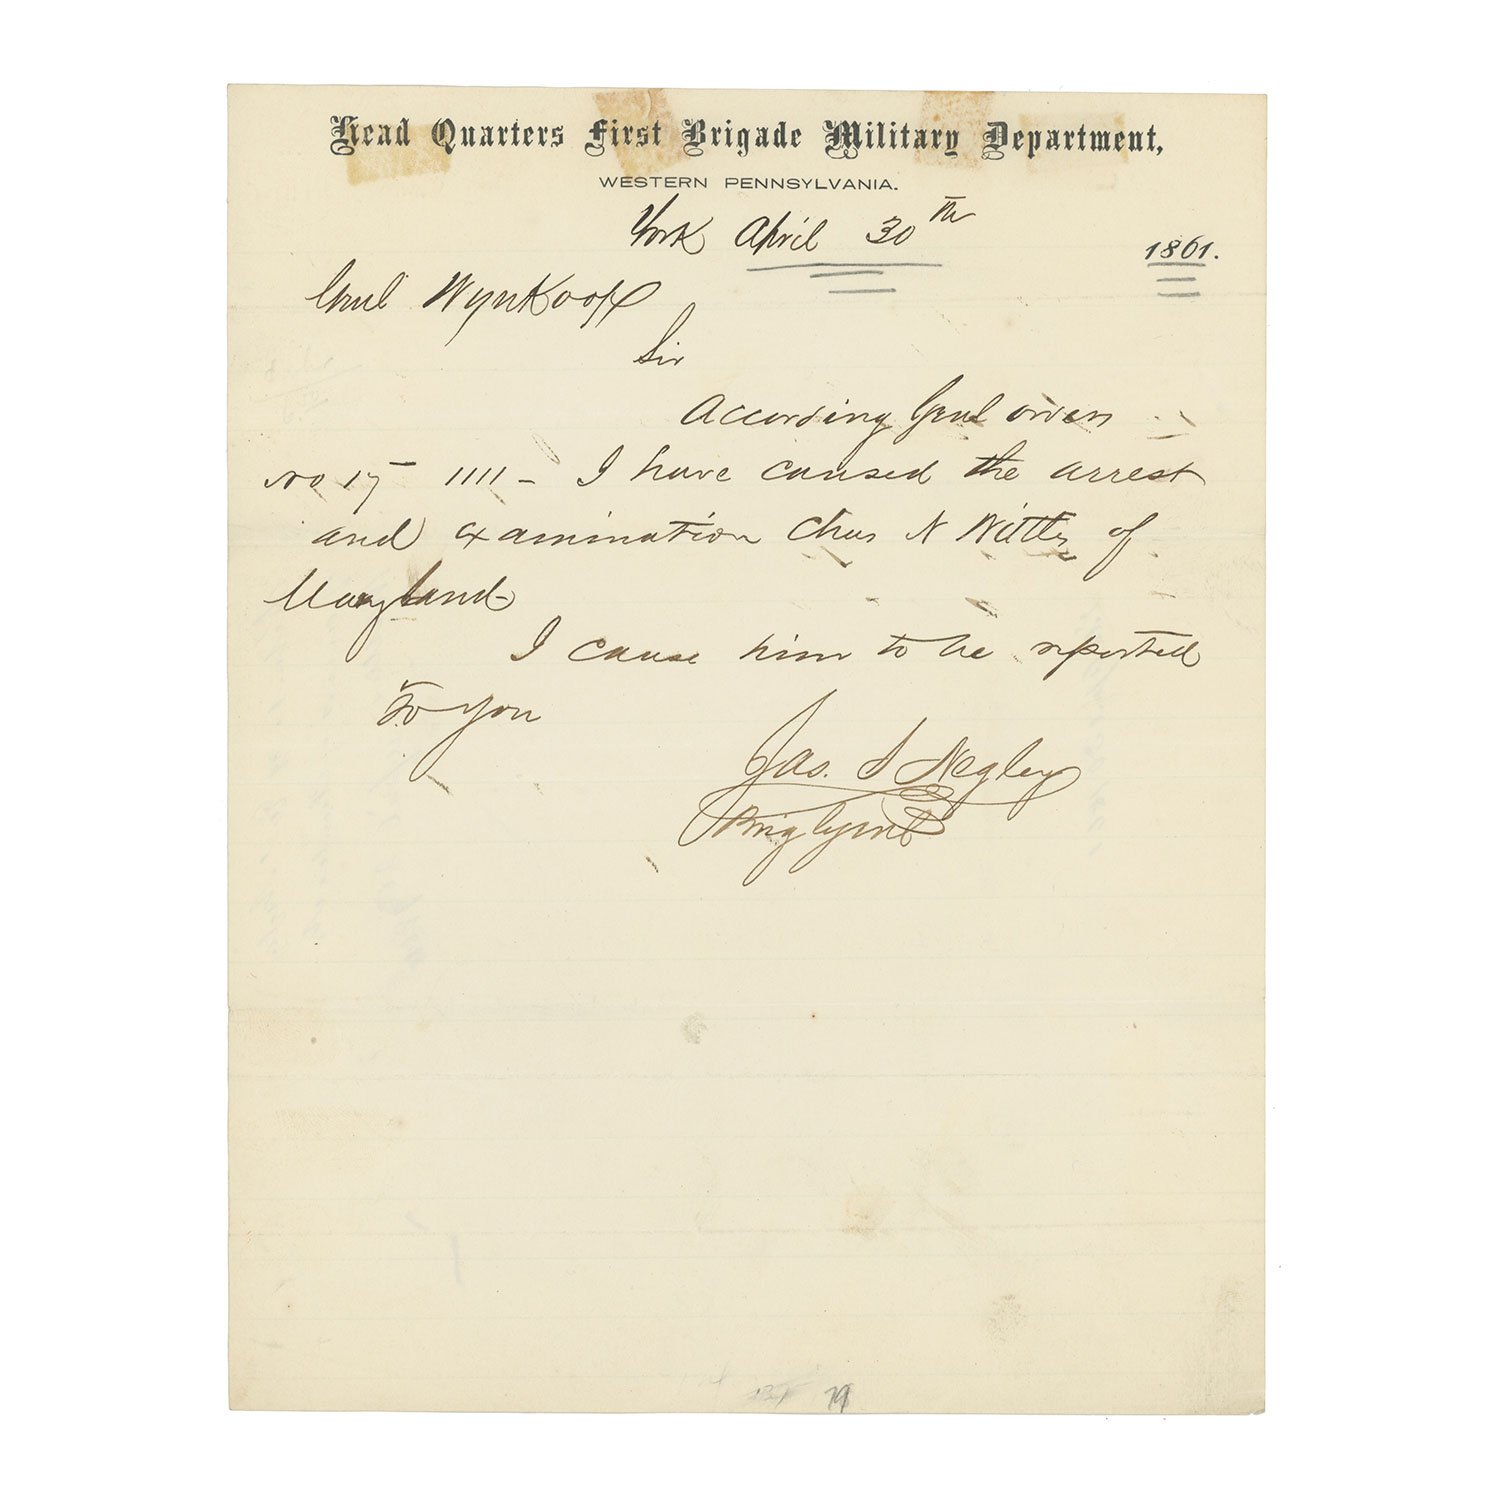 Head Quarters First Brigade Military Department,
WESTERN PENNSYLVANIA.
York April 30th 1861.
Genl Wynkoop
Sir
According Genl orders
No 17 1111 - I have caused the arrest
and examination Chas N of
Maryland-
I cause him to be reported
to you
Jas. S Negley
Brig Genl